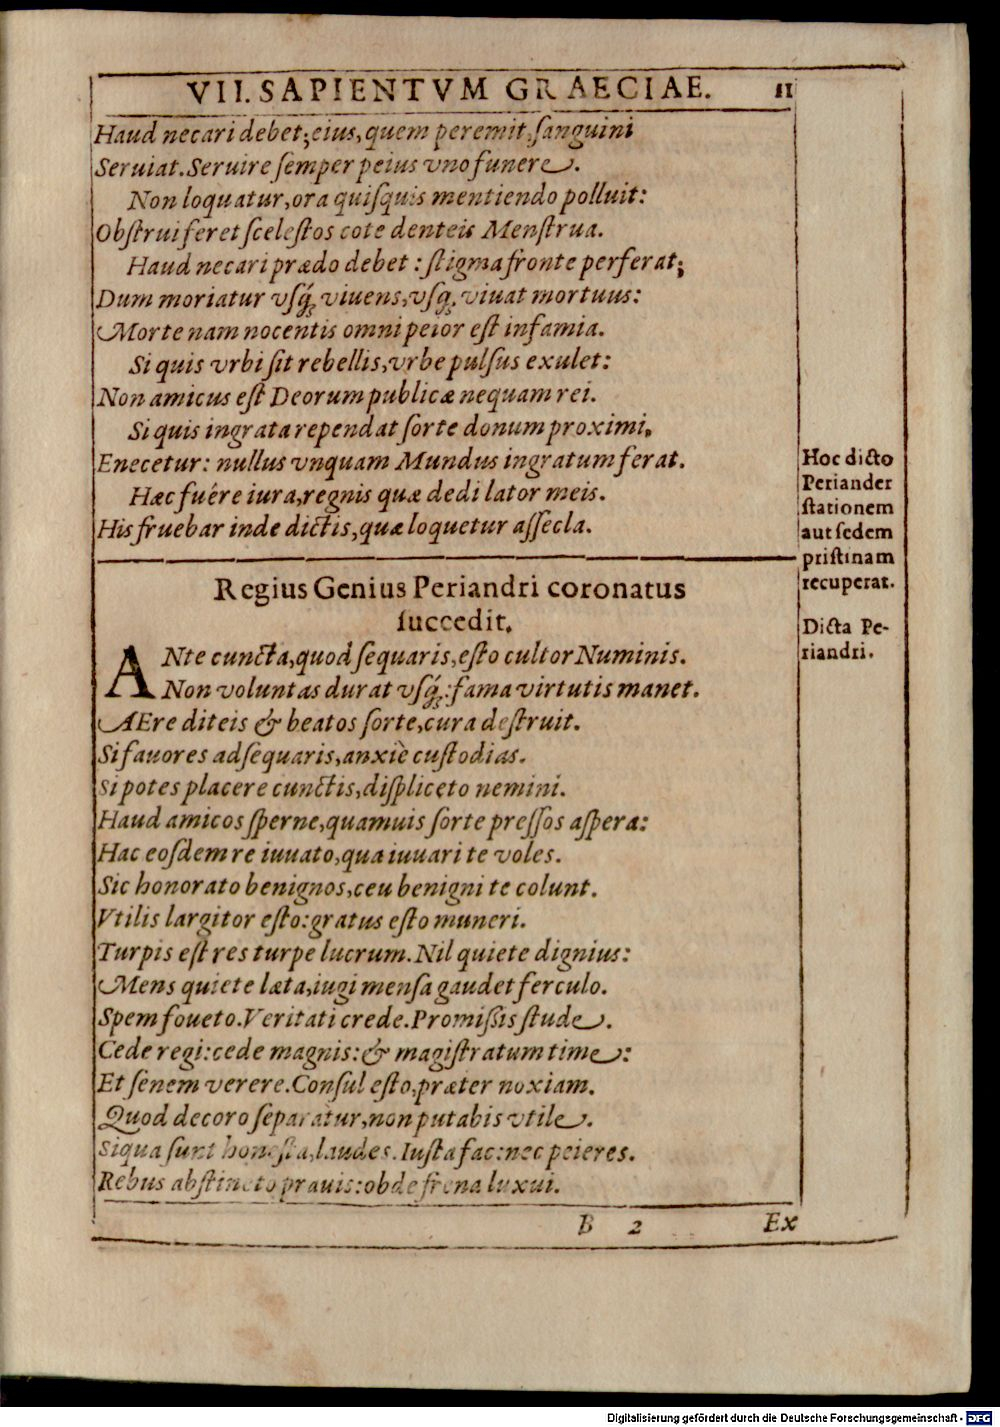 VII. SAPIENTVM GRAECIAE. 11
Haud necari debet; eius, quem peremit, ſanguini
Seruiat. Seruire ſemper peius vno funere.
Non loquatur, ora quiſquis mentiendo polluit:
Obſtrui feret ſceleſtos cote denteis Menſtrua.
Haud necari prædo debet: ſtigma fronte perferat;
Dum moriatur vſq́; viuens, vſq; viuat mortuus:
Morte nam nocentis omni peior eſt infamia.
Si quis vrbi ſit rebellis, vrbe pulſus exulet:
Non amicus eſt Deorum publicæ nequam rei.
Si quis ingrata rependat ſorte donum proximi,
Enecetur: nullus vnquam Mundus ingratum ferat.
Hæc fuére iura, regnis quæ dedi lator meis.
His fruebar inde dictis, quæ loquetur aſſecla.
Hoc dicto
Periander
ſtationem
aut ſedem
priſtinam
recuperat.
Regius Genius Periandri coronatus
ſuccedit.
Dicta Pe-
riandri.
ANte cuncta, quod ſequaris, eſto cultor Numinis.
Non voluntas durat vſq́;: fama virtutis manet.
AEre diteis & beatos ſorte, cura deſtruit.
Si fauores adſequaris, anxiè cuſtodias.
Si potes placere cunctis, diſpliceto nemini.
Haud amicos ſperne, quamuis ſorte preſſos aſpera:
Hac eoſdem re iuuato, qua iuuari te voles.
Sic honorato benignos, ceu benigni te colunt.
Vtilis largitor eſto: gratus eſto muneri.
Turpis eſt res turpe lucrum. Nil quiete dignius:
Mens quiete læta, iugi menſa gaudet ferculo.
Spem foueto. Veritati crede. Promiſſis ſtude.
Cede regi: cede magnis: & magiſtratum time:
Et ſenem verere. Conſul eſto, præter noxiam.
Quod decoro ſeparatur, non putabis vtile.
Siqua ſunt honeſta, laudes. Iuſta fac: nec peieres.
Rebus abſtineto prauis: obde frena luxui.
B 2 Ex
Digitalisierung gefördert durch die Deutsche Forschungsgemeinschaft - DFG